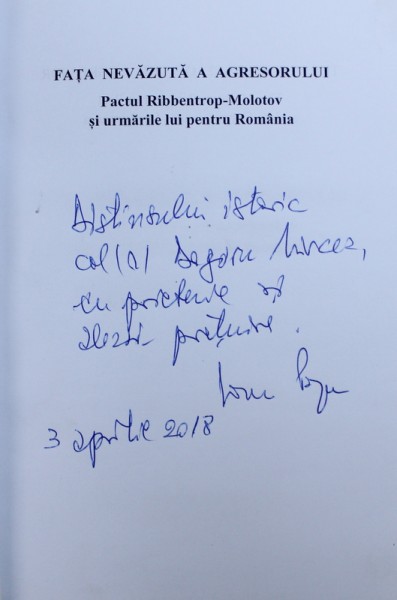 FAȚA NEVĂZUTĂ A AGRESORULUI
Pactul Ribbentrop-Molotov
și urmările lui pentru România
Distinsului istoric
col (r) Dogaru Mircea,
cu prietenie și
aleasă prețuire.
Ioan
3 aprilie 2018